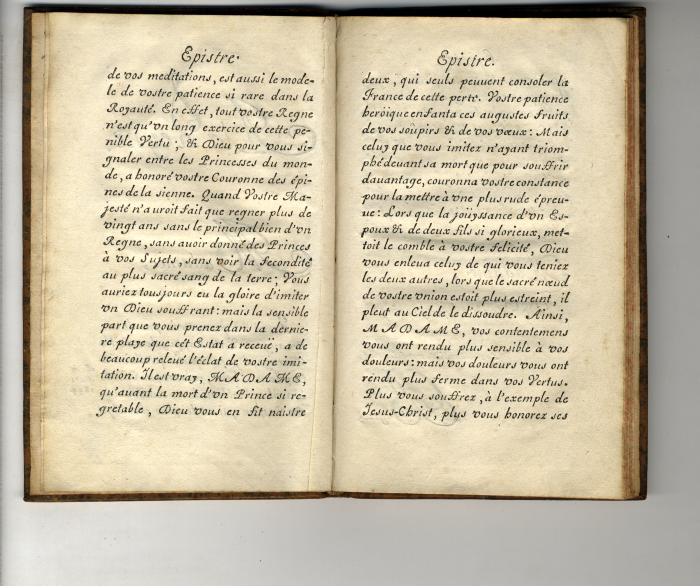 Epistre.
de vos meditations, est aussi le mode-
le de vostre patience si rare dans la
Royauté. En effet, tout vostre Regne
n'est qu'vn long exercice de cette pe-
nible Vertu ; & Dieu pour vous si-
gnaler entre les Princesses du mon-
de, a honoré vostre Couronne des épi-
nes de la sienne. Quand Vostre Ma-
jesté n'auroit fait que regner plus de
vingt ans sans le principal bien d'vn
Regne, sans auoir donné des Princes
à vos Sujets, sans voir la fecondité
au plus sacré sang de la terre ; Vous
auriez tousjours eu la gloire d'imiter
vn Dieu souffrant : mais la sensible
part que vous prenez dans la dernie-
re playe que cét Estat a receuë, a de
beaucoup releué l'éclat de vostre imi-
tation. Il est vray, MADAME,
qu'auant la mort d'vn Prince si re-
gretable, Dieu vous en fit naistre
Epistre.
deux, qui seuls peuuent consoler la
France de cette perte. Vostre patience
heroique enfanta ces augustes fruits
de vos soûpirs & de vos vœux : Mais
celuy que vous imitez n'ayant triom-
phé deuant sa mort que pour souffrir
dauantage, couronna vostre constance
pour la mettre à vne plus rude épreu-
ue : Lors que la joüyssance d'vn Es-
poux & de deux fils si glorieux, met-
toit le comble à vostre felicité, Dieu
vous enleua celuy de qui vous teniez
les deux autres, lors que le sacré nœud
de vostre vnion estoit plus estreint, il
pleut au Ciel de le dissoudre. Ainsi,
MADAME, vos contentemens
vous ont rendu plus sensible à vos
douleurs : mais vos douleurs vous ont
rendu plus ferme dans vos Vertus.
Plus vous souffrez, à l'exemple de
Jesus-Christ, plus vous honorez ses